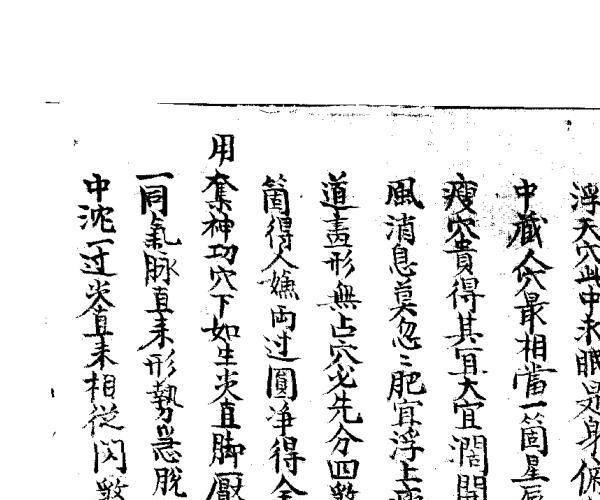 浮天穴此中求眠是身
中藏人穴最相當一箇星辰
瘦穴貴得其宜大宜濶開
風消息莫忽〻肥宜浮上
道盡形無占穴必先分四數
箇得人嫌両过圓净得全
用奪神功穴下如生炎直脚
一同氣脉直来形勢急脫
中沈一过炎直来相從閃數